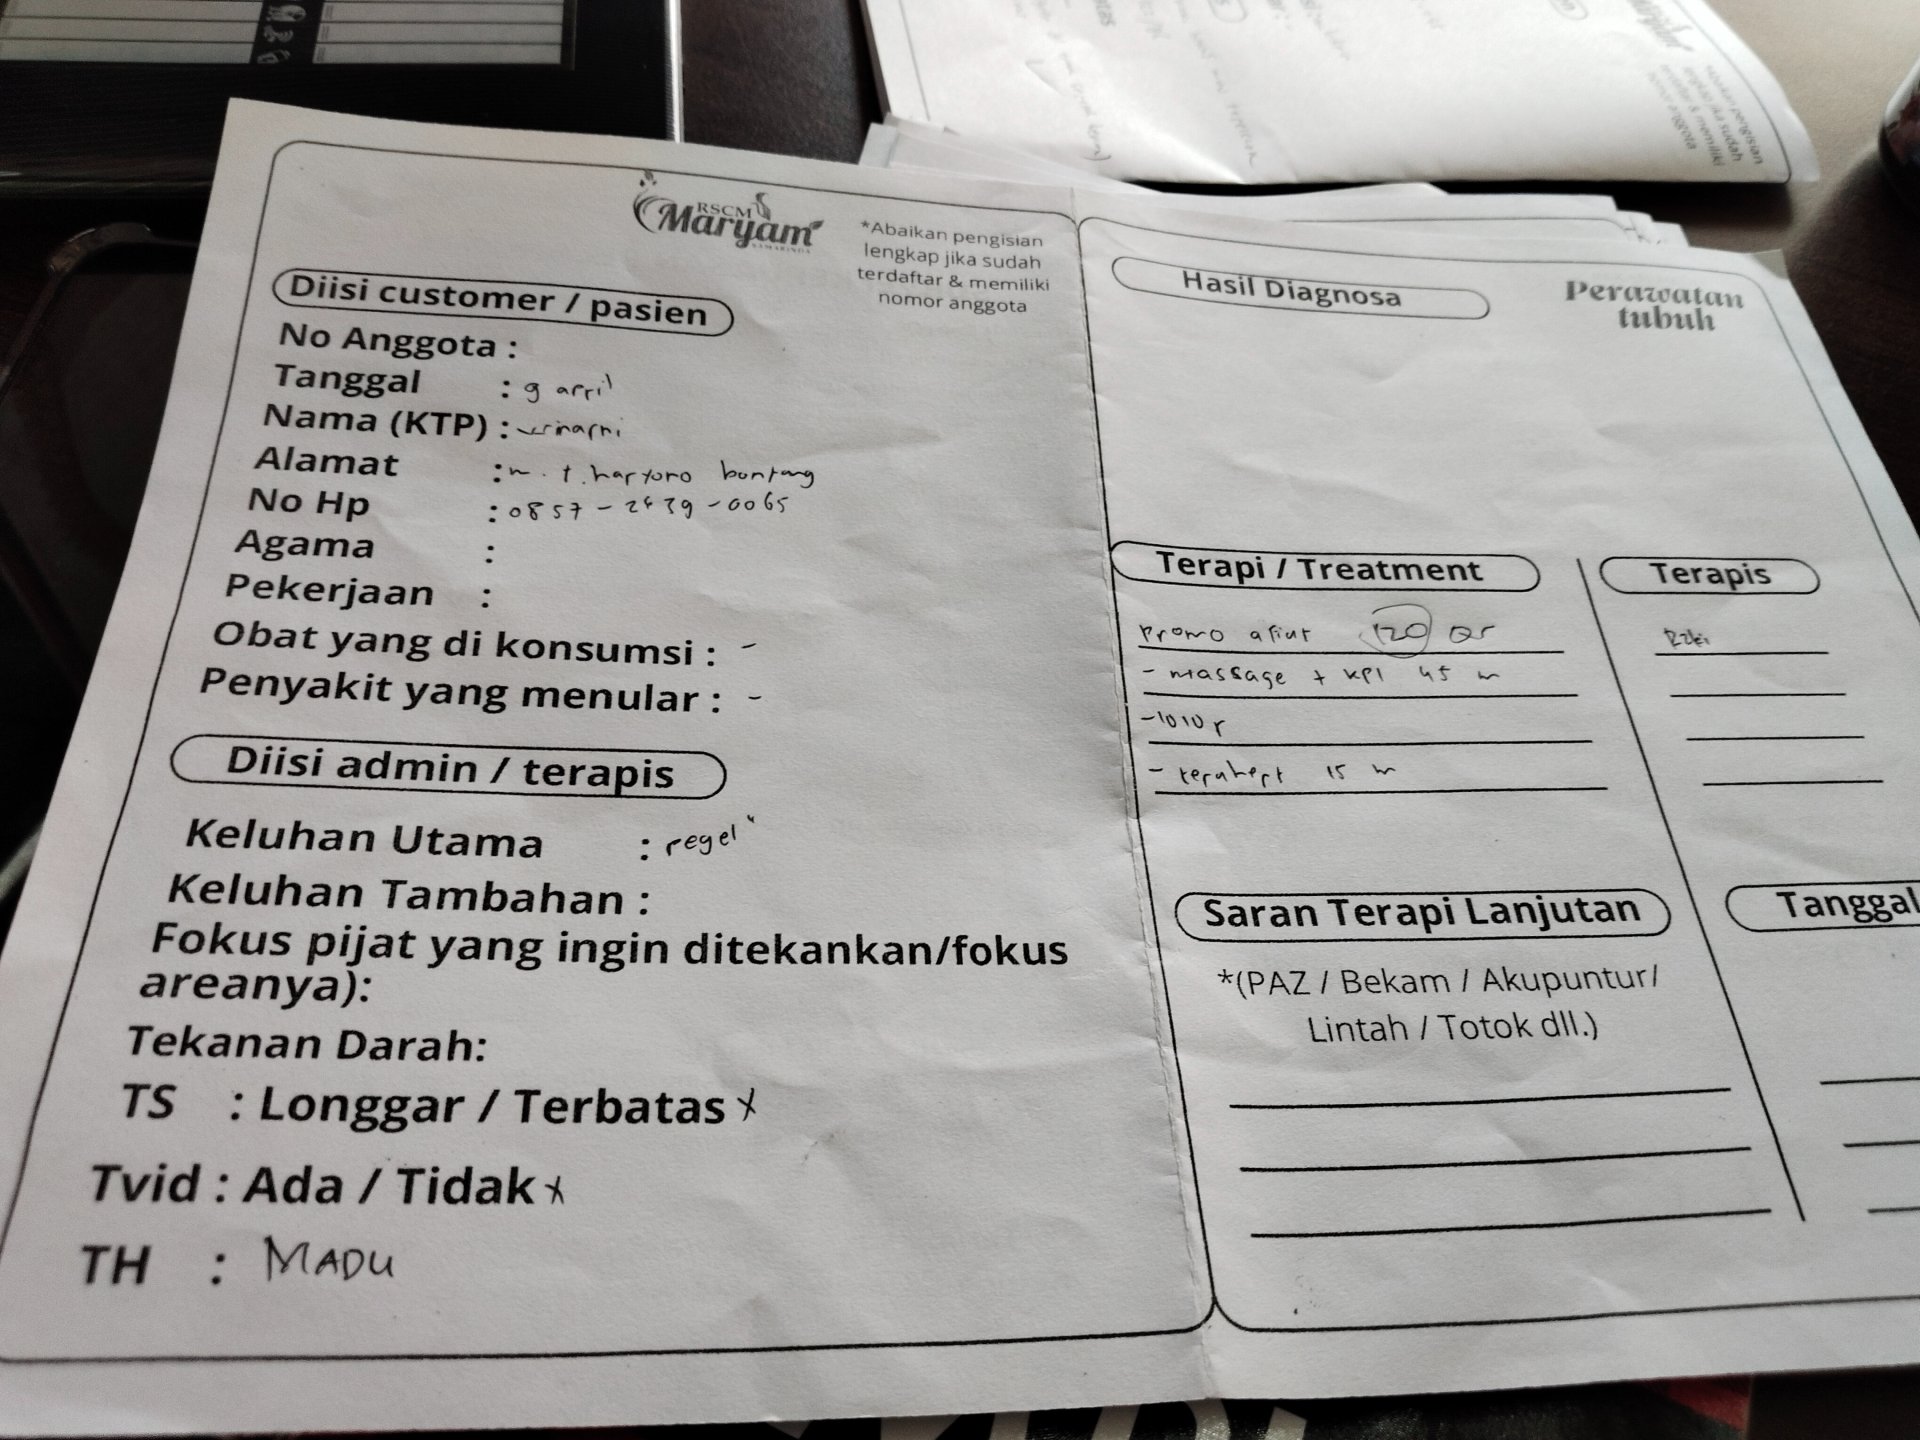 RSCM
Maryam
SAMARINDA
*Abaikan pengisian
lengkap jika sudah
terdaftar & memiliki
nomor anggota
Diisi customer / pasien
No Anggota :
Tanggal : 9 april
Nama (KTP) :
Alamat : m. t. haryono bontang
No Hp : 0857-2439-0065
Agama :
Pekerjaan :
Obat yang di konsumsi : -
Penyakit yang menular : -
Diisi admin / terapis
Keluhan Utama : pegel"
Keluhan Tambahan :
Fokus pijat yang ingin ditekankan/fokus
areanya):
Tekanan Darah:
TS : Longgar / Terbatas x
Tvid : Ada / Tidak x
TH : MADU
Hasil Diagnosa
Perawatan
tubuh
Terapi / Treatment
promo afiat 120 Qr
- massage + KPI 45 m
-
- terahert 15 m
Terapis
Rizki
Saran Terapi Lanjutan
*(PAZ / Bekam / Akupuntur/
Lintah / Totok dll.)
Tanggal
*Abaikan pengisian
lengkap jika sudah
terdaftar & memiliki
nomor anggota